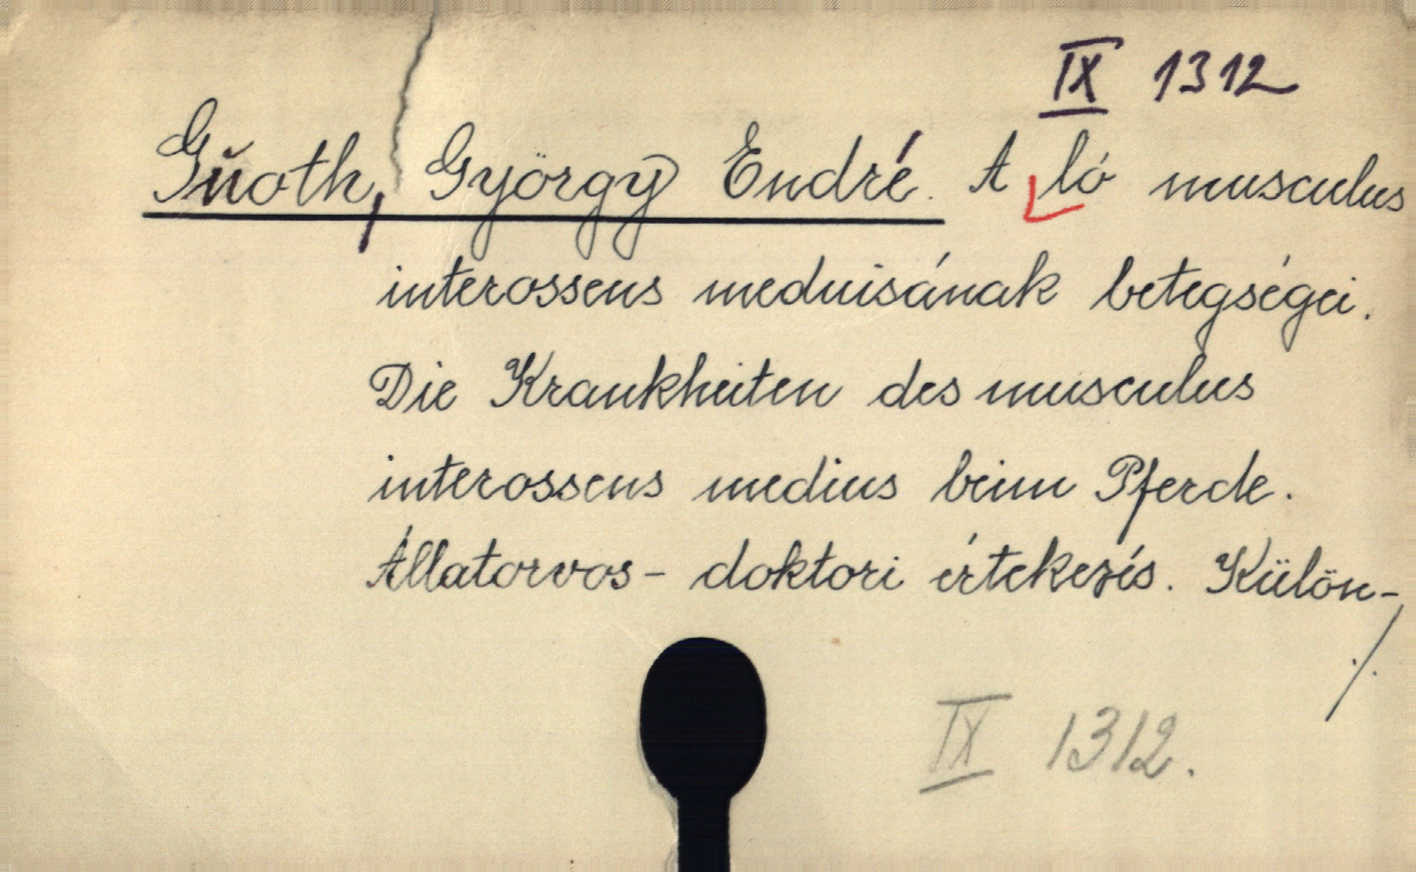 IX 1312
Gŭoth, György Endré. A ló musculus
interosseus mediusának betegségei.
Die Krankheiten des musculus
interosseus medius beim Pferde.
Állatorvos- doktori értekezés. Külön-
./.
IX 1312.